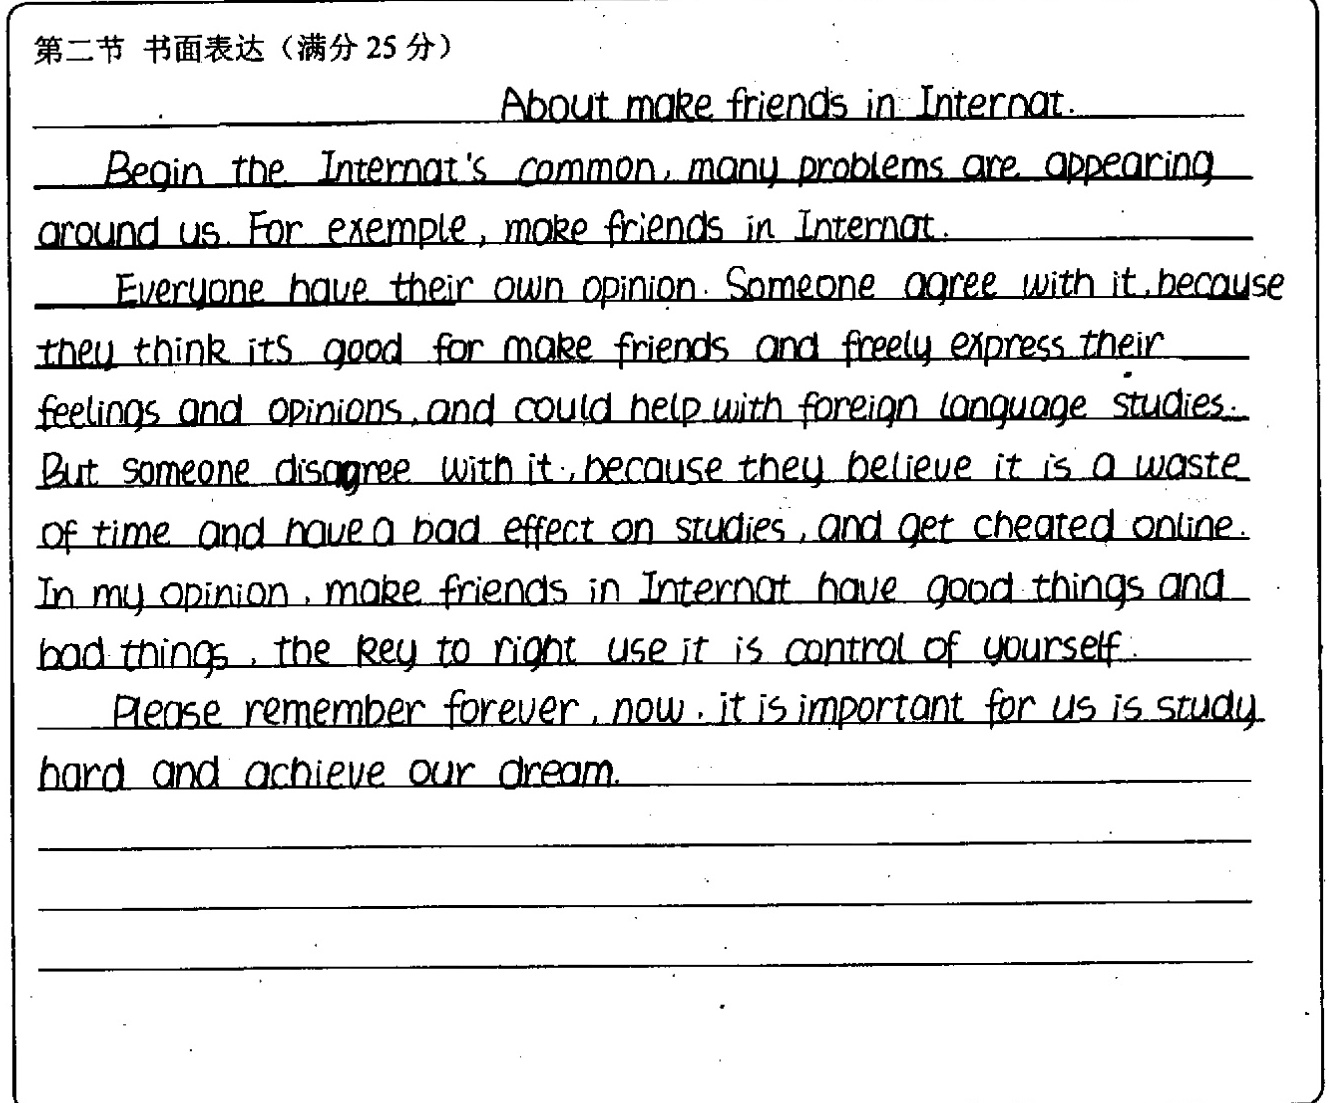 第二节 书面表达（满分 25 分）
About make friends in Internat.
Begin the Internat's common, many problems are appearing
around us. For exemple, make friends in Internat.
Everyone have their own opinion. Someone agree with it, because
they think its good for make friends and freely express their
feelings and opinions, and could help with foreign language studies.
But someone disagree with it, because they believe it is a waste
of time and have a bad effect on studies, and get cheated online.
In my opinion, make friends in Internat have good things and
bad things, the key to right use it is control of yourself.
Please remember forever, now, it is important for us is study
hard and achieve our dream.